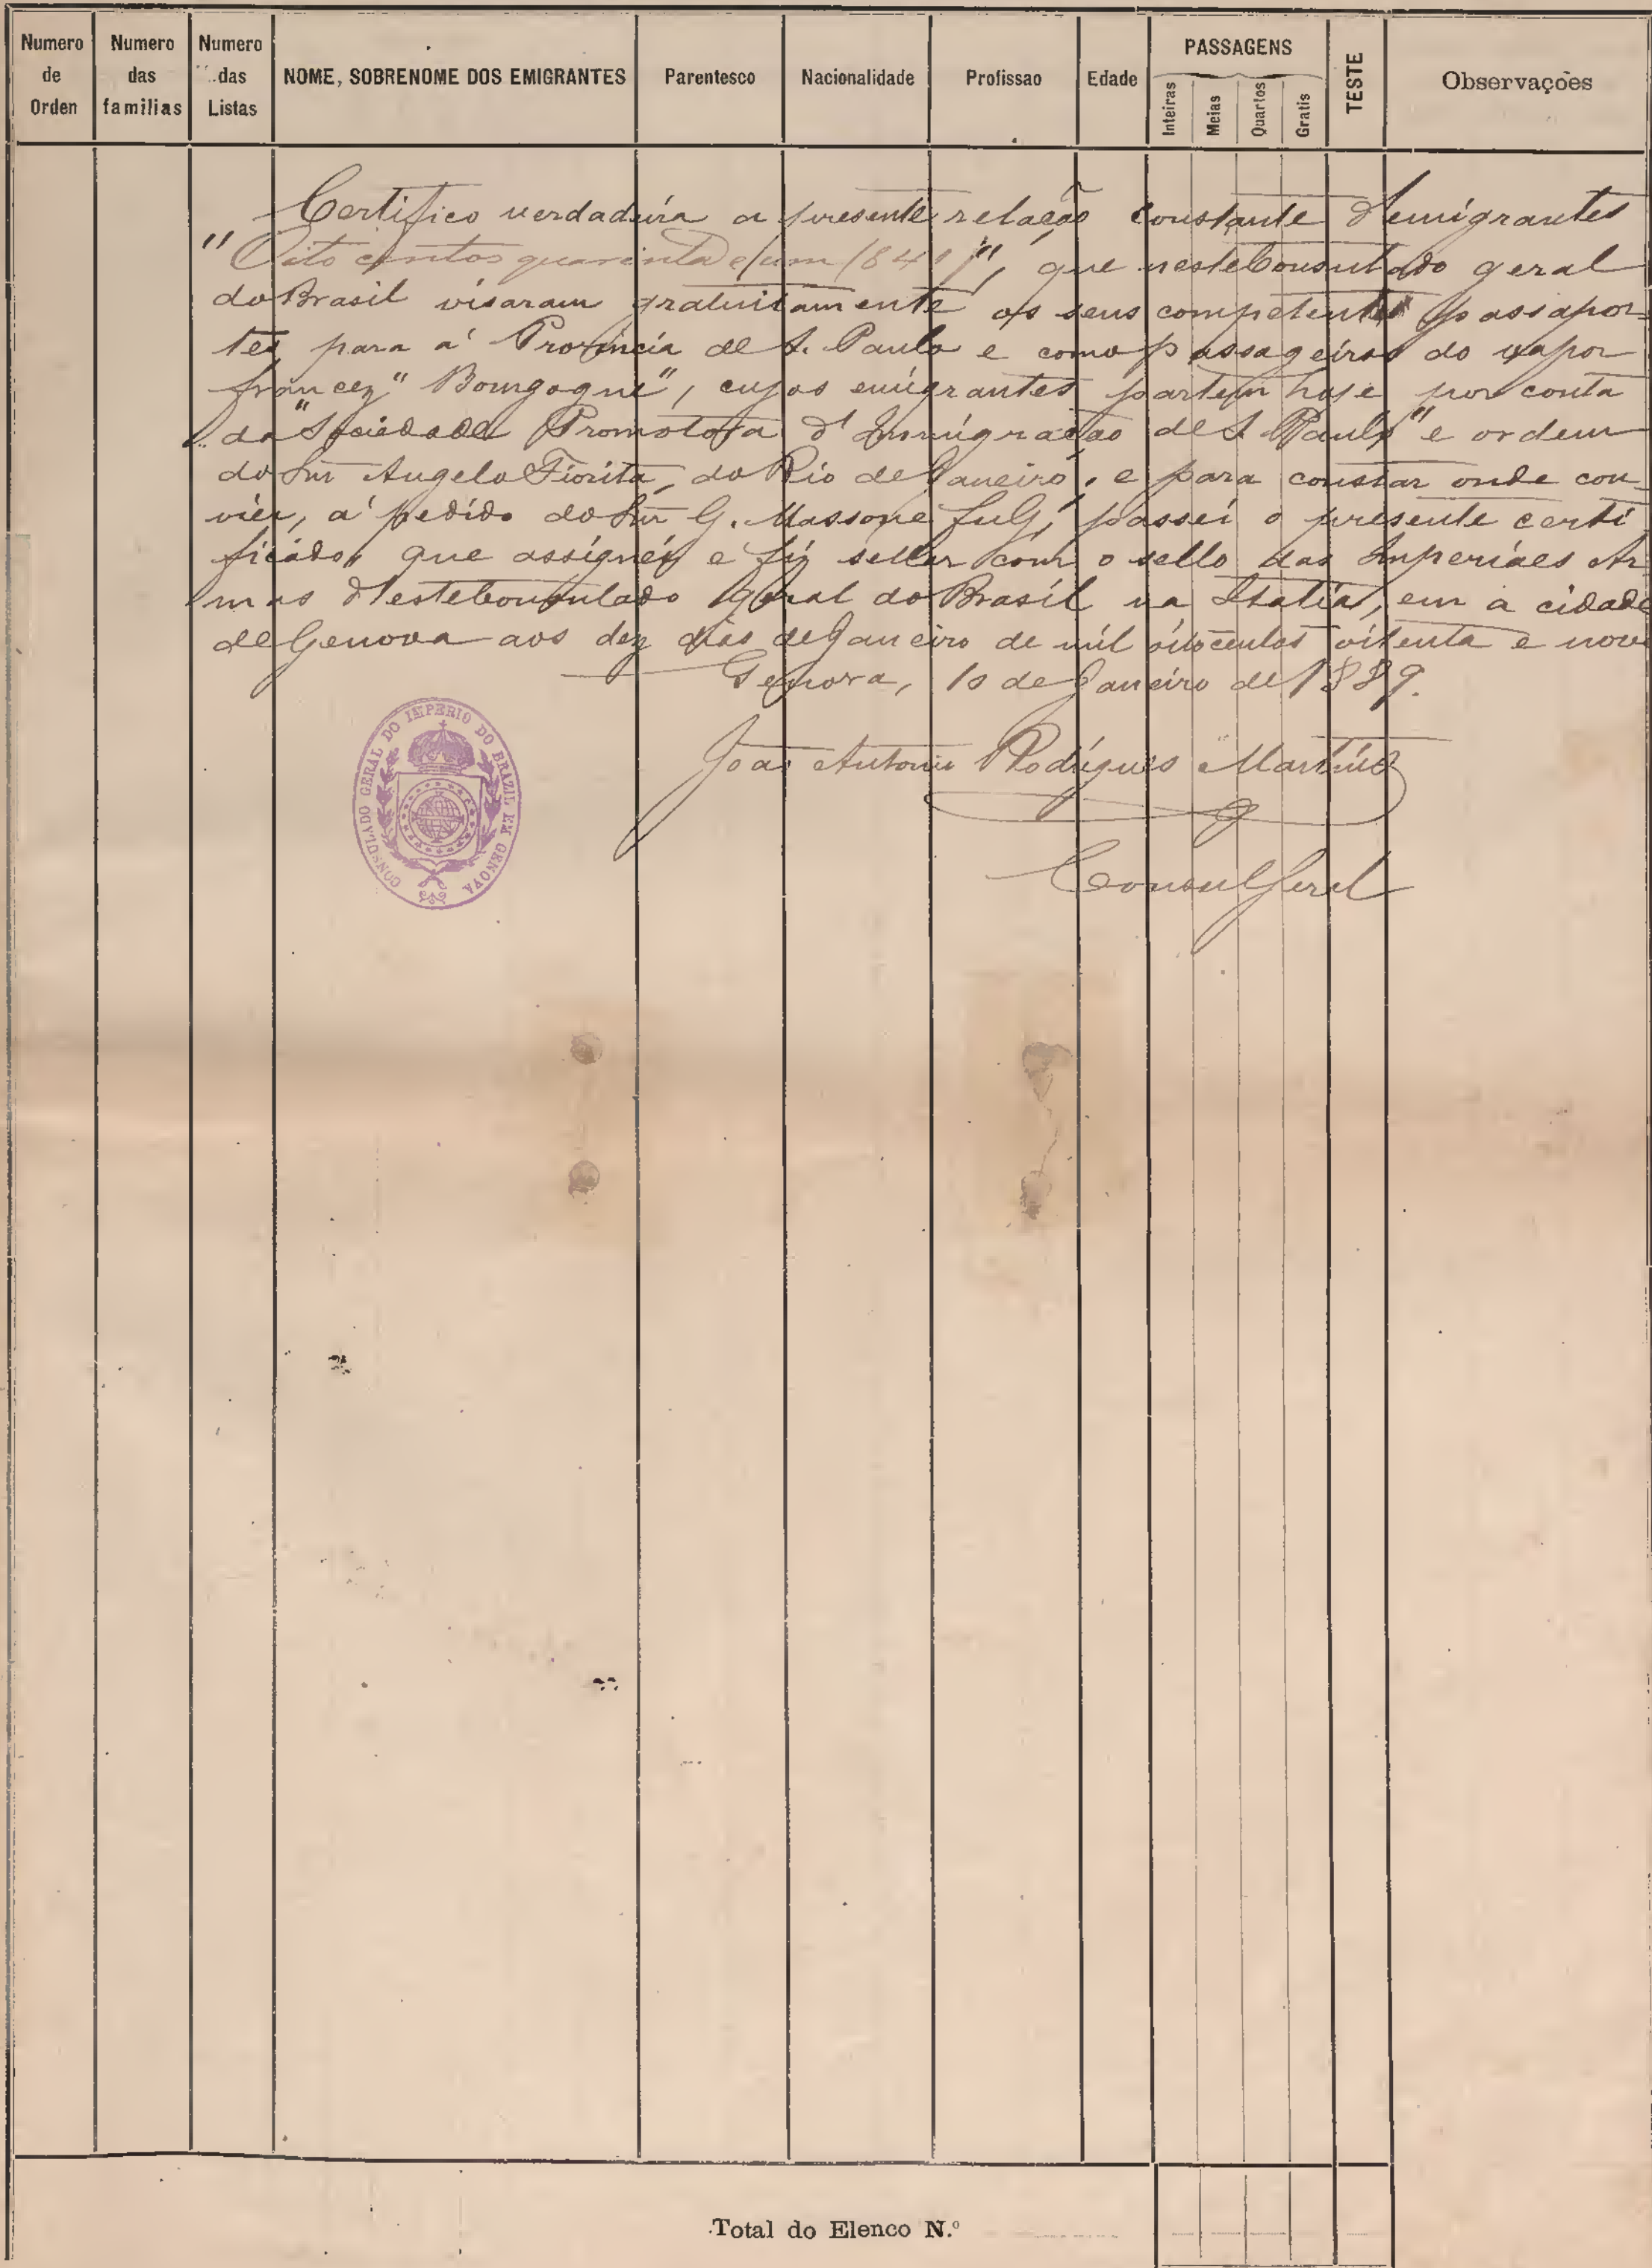 Numero de Orden
Numero das familias
Numero das Listas
NOME, SOBRENOME DOS EMIGRANTES
Parentesco
Nacionalidade
Profissao
Edade
PASSAGENS
Inteiras
Meias
Quartos
Gratis
TESTE
Observações
Certifico verdadeira a presente relação constante d'emigrantes
"Oito centos quarenta e um (841)", que neste Consulado geral
do Brasil visaram gratuitamente os seus competentes passapor-
tes para a' Provincia de S. Paulo e como passageiros do vapor
francez "Bourgogne", cujos emigrantes partem hoje por conta
da "Sociedade Promotora d'Immigração de S. Paulo" e ordem
do Snr Angelo Fiorita, do Rio de Janeiro, e para constar onde con-
vier, a' pedido do Snr G. Massone fu G, passei o presente certi
ficado, que assignei e fiz sellar com o sello das Imperiaes Ar
mas d'este Consulado Geral do Brasil na Italia, em a cidade
de Genova aos dez dias de Janeiro de mil oitocentos oitenta e nove
Genova, 10 de Janeiro de 1889.
João Antonio Rodrigues Martins
Consul Geral
CONSULADO GERAL DO IMPERIO DO BRAZIL EM GENOVA
Total do Elenco N.º